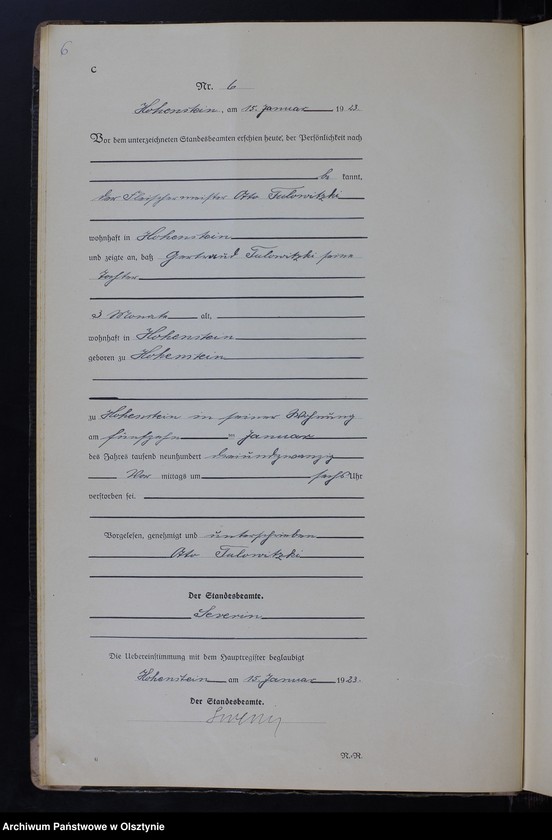 6
C
Nr. 6
Hohenstein, am 15. Januar 1923.
Vor dem unterzeichneten Standesbeamten erschien heute, der Persönlichkeit nach
be kannt,
der Fleischermeister Otto Tulowitzki
wohnhaft in Hohenstein
und zeigte an, daß Gertraud Tulowitzki seine
Tochter
3 Monate alt,
wohnhaft in Hohenstein
geboren zu Hohenstein
zu Hohenstein in seiner Wohnung
am fünfzehn ten Januar
des Jahres tausend neunhundert dreiundzwanzig
Vor mittags um sechs Uhr
verstorben sei.
Vorgelesen, genehmigt und unterschrieben
Otto Tulowitzki
Der Standesbeamte.
Severin
Die Uebereinstimmung mit dem Hauptregister beglaubigt
Hohenstein am 15. Januar 1923.
Der Standesbeamte.
Severin
N.-R.
Archiwum Państwowe w Olsztynie